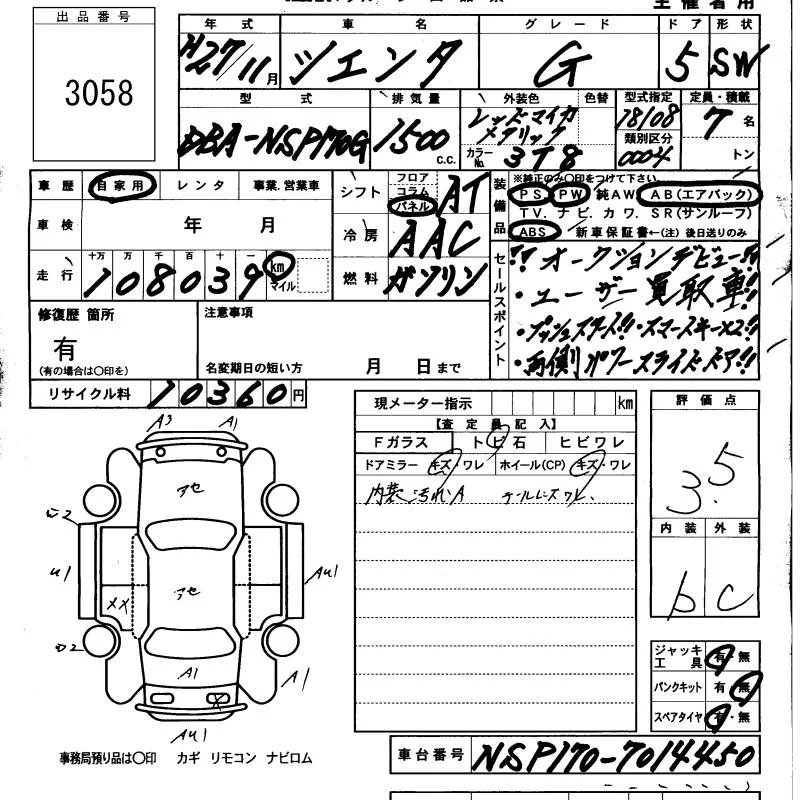 出品番号
3058
年式 車名 グレード ドア 形状
H27/11月 シエンタ G 5 SW
型式 排気量 外装色 色替 型式指定 定員・積載
DBA-NSP170G 1500 c.c. レッドマイカメタリック 18108 7名
類別区分
カラーNo. 3T8 0004 トン
車歴 自家用 レンタ 事業.営業車
シフト フロア コラム パネル AT
装備品 ※純正のみ〇印をつけて下さい。
PS. PW. 純AW. AB(エアバック)
TV. ナビ. カワ. SR(サンルーフ)
ABS 新車保証書←(注)後日送りのみ
車検 年 月
冷房 AAC
走行 十万 万 千 百 十 一
108039 km マイル
燃料 ガソリン
セールスポイント
!! オークションデビュー!!
・ユーザー買取車!!
・プッシュスタート!!・スマートキー×2!!
・両側パワースライドドア!!
修復歴 箇所
有
(有の場合は〇印を)
注意事項
名変期日の短い方 月 日まで
リサイクル料 10360円
現メーター指示 km
【査定員記入】
Fガラス トビ石 ヒビワレ
ドアミラー キズ・ワレ ホイール(CP) キズ・ワレ
内装汚れA テールレンズワレ、
評価点
3.5
内装 外装
b C
A3 A1
アセ
U1
アセ
AU1
メメ
A1
A1
X
AU1
ジャッキ工具 有・無
パンクキット 有・無
スペアタイヤ 有・無
事務局預り品は〇印 カギ リモコン ナビロム
車台番号 NSP170-7014450